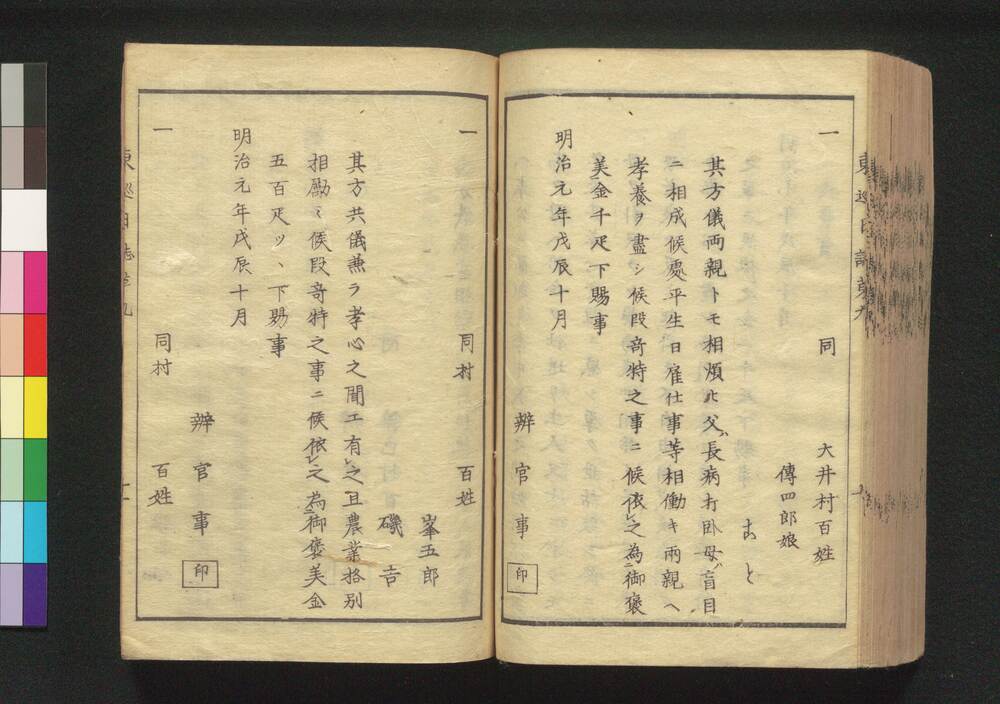 一　同　大井村百姓
傳四郎娘
と
其方儀両親トモ相煩ヒ父ハ長病打臥母ハ盲目
ニ相成候處平生日雇仕事等相働キ両親ヘ
孝養ヲ盡シ候段竒特之事ニ候依之為御褒
美金千疋下賜事
明治元年戊辰十月
辨官事　印
一　同村　百姓
峯五郎
磯吉
其方共儀兼ヲ孝心之聞エ有之且農業格別
相勵ミ候段竒特之事ニ候依之為御褒美金
五百疋ツヽ下賜事
明治元年戊辰十月
辨官事　印
一　同村　百姓